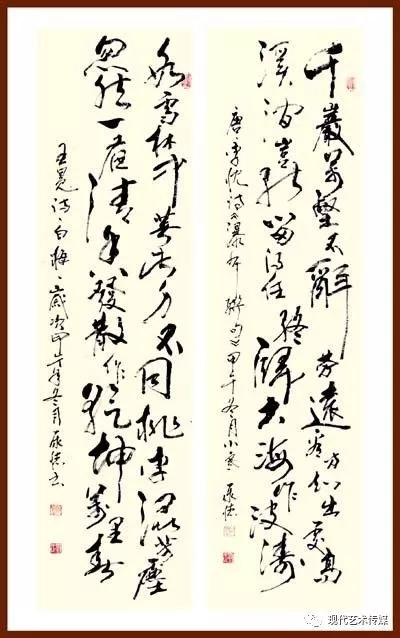 千巖萬壑不辭勞遠看方知出處高
溪澗豈能留得住終歸大海作波濤
唐李忱詩瀑布聯句甲午冬月小寒
冰雪林中著此身不同桃李混芳塵
忽然一夜清香發散作乾坤萬里春
王冕詩白梅歲次甲午年冬月
现代艺术传媒